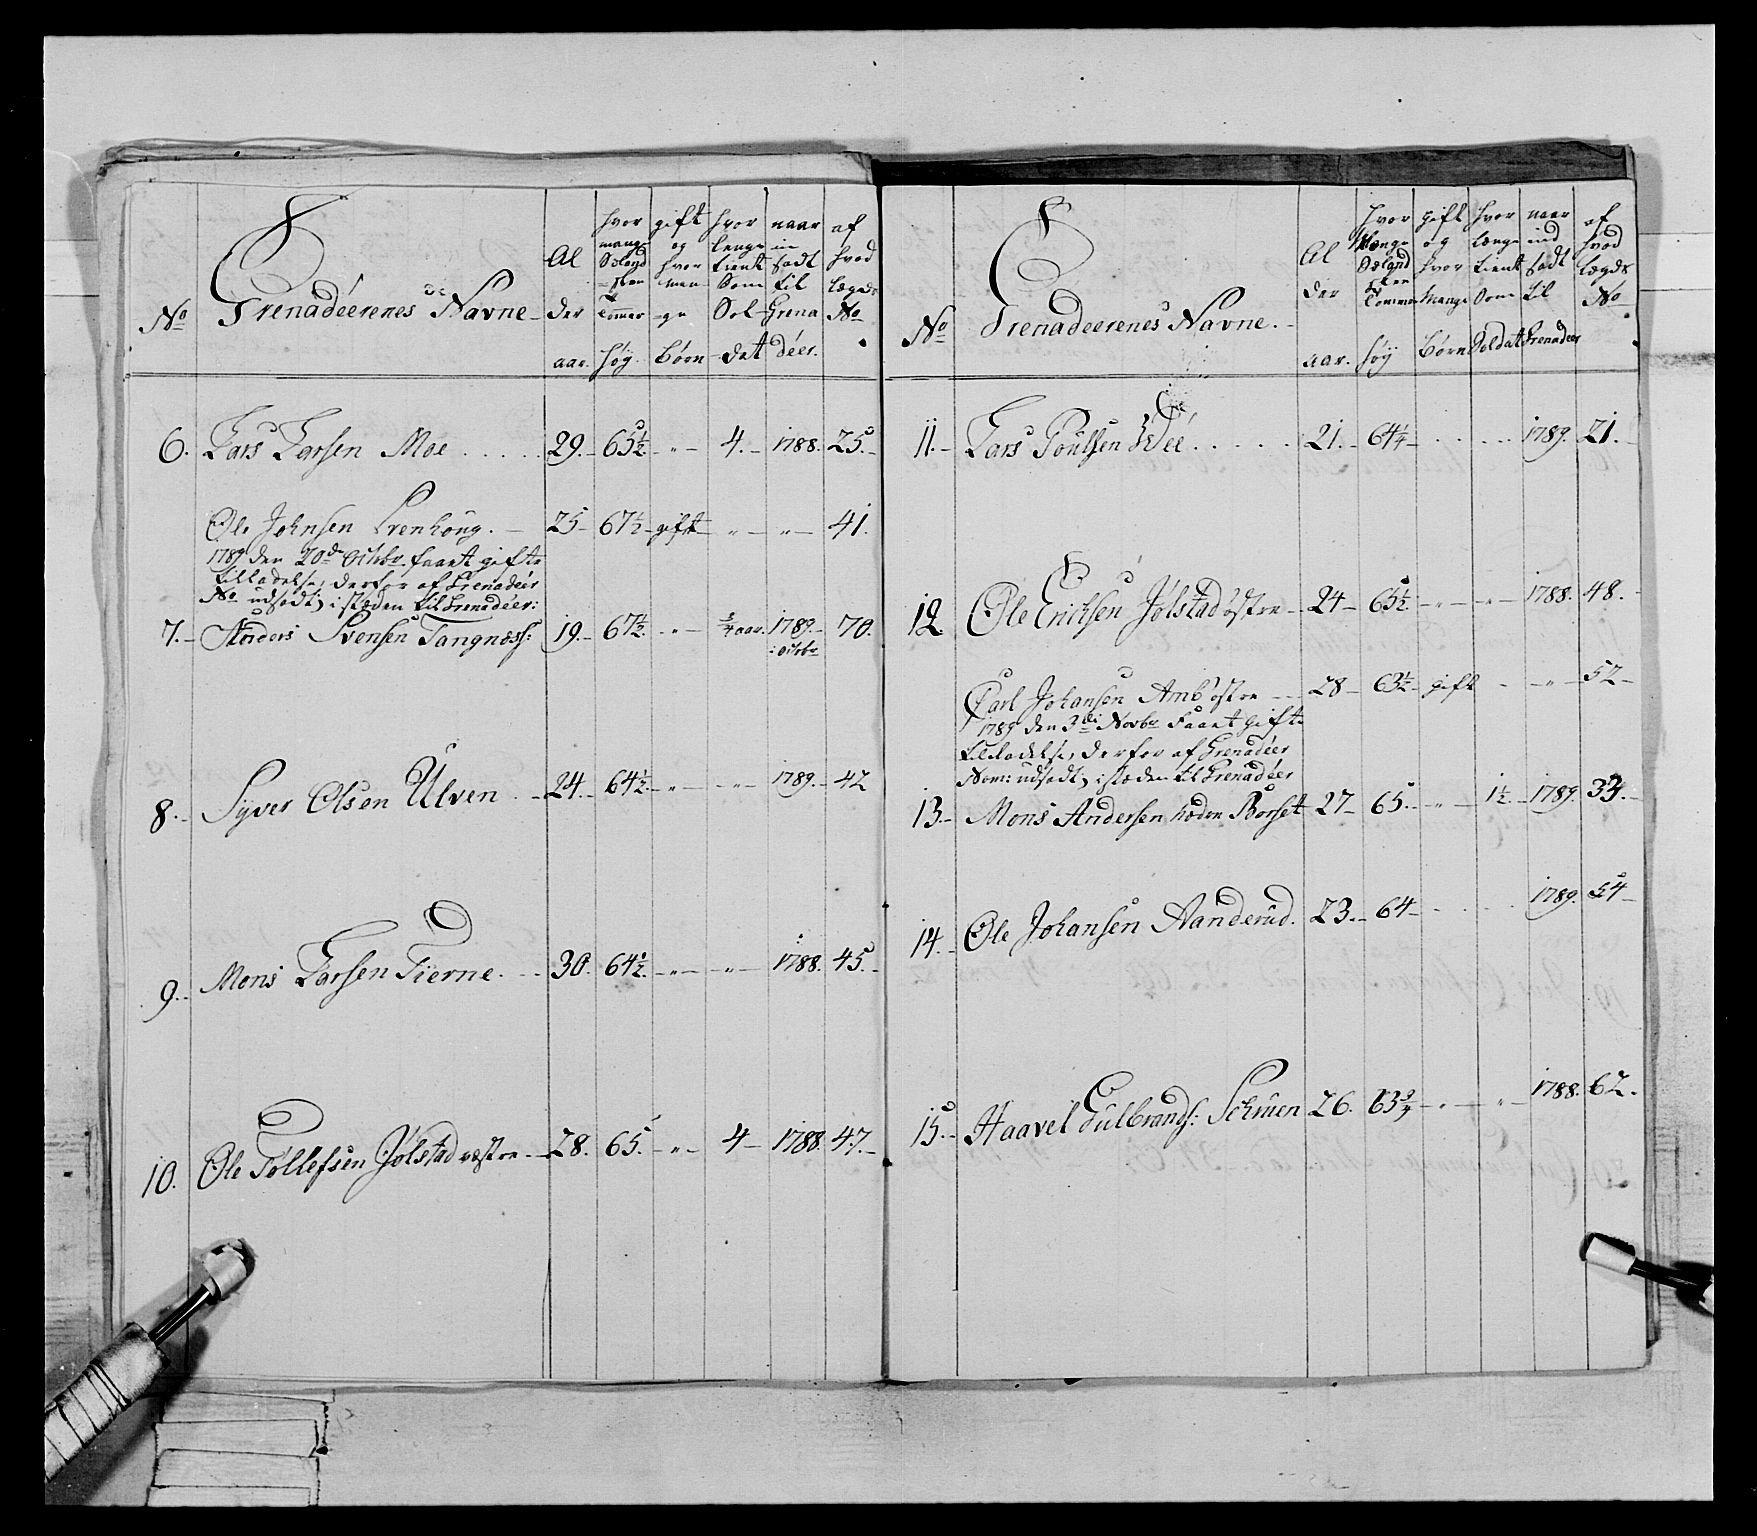 No Grenadeerenes Navne Al der aar. hvor mange Sælandsken Tomer høy. gift og hvor mange Børn hvor lenge tient Som Soldat naar indsadt til Grenadéer. af hvad lægds No
6. Lars Larsen Moe 29. 65½ " 4. 1788. 25.
Ole Johnsen 25 67½ gift " " 41.
1789 den 20de Octobr. faaet gifte
tilladelse, derfor af Grenadéer
No udsadt, i stæden til Grenadéer:
7. Anders Svensen Tangnæss: 19. 67½ " ¾ aar. 1789. 70.
: Octobr
8. Syver Olsen Ulven 24. 64½ " " 1789. 42
9. Mons Larsen Tierne. 30. 64½ " " 1788. 45.
10. Ole Tollefsen Jølstad væstre 28. 65. " 4 1788. 47.
No Grenadeerenes Navne. Al der aar. hvor Mange Sælandsken Tommer høÿ gift og hvor Mange Børn hvor længe tient Som Soldat naar indsadt til Grenadeer af hvad lægds No
11. Lars Poulsen Wee 21. 64¼ 1789. 21.
12. Ole Erichsen Jølstad østre 24 65½ " " 1788. 48.
Carl Johansen østre 28 63½ gift " 52
1789 den 3die Novbr Faaet gifte
tilladelse, derfor af Grenadéer
Nom: udsadt, i stæden til Grenadéer
13. Mons Andersen næden Børset 27 65. " 1½ 1789. 33.
14. Ole Johansen Aanderud. 23. 64 1789. 54
15. Haavel Gulbrands: 26. 63¾ " " 1788. 62.